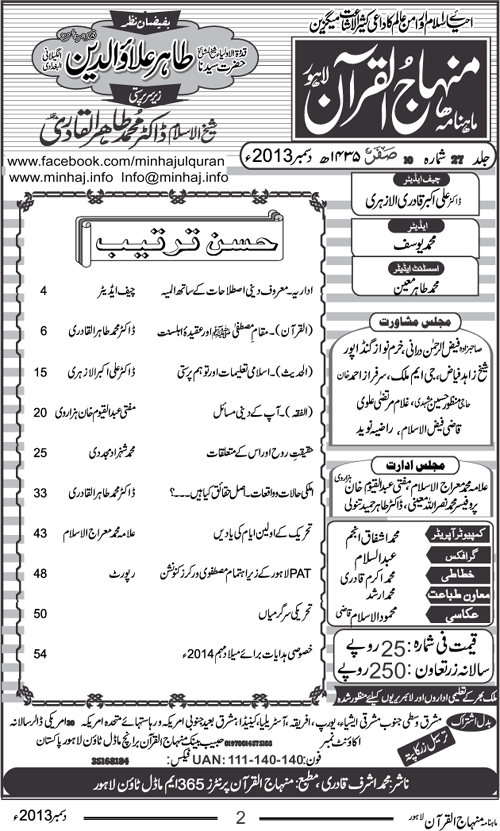 احیائے اسلام و امن عالم کا داعی کثیر الاشاعت میگزین
ماہنامہ منہاج القرآن لاہور
بفیضان نظر
حضرت سیدنا طاہر علاؤالدین
زیر سرپرستی
شیخ الاسلام ڈاکٹر محمد طاہر القادری
جلد 27 شماره 10 صفر ۱۴۳۵ھ دسمبر 2013ء
www.facebook.com/minhajulquran
www.minhaj.info Info@minhaj.info
چیف ایڈیٹر
ڈاکٹر علی اکبر قادری الازہری
ایڈیٹر
محمد یوسف
اسسٹنٹ ایڈیٹر
محمد طاہر معین
مجلس مشاورت
صاحبزادہ فیض الرحمٰن درانی، خرم نواز گنڈاپور
شیخ زاہد فیاض، جی ایم ملک، سرفراز احمد خان
حاجی منظور حسین مشہدی، غلام مرتضیٰ علوی
قاضی فیض الاسلام، راضیہ نوید
مجلس ادارت
علامہ محمد معراج الاسلام، مفتی عبدالقیوم خان ہزاروی
پروفیسر محمد نصراللہ معینی، ڈاکٹر طاہر حمید تنولی
کمپیوٹر آپریٹر محمد اشفاق انجم
گرافکس عبدالسلام
خطاطی محمد اکرم قادری
معاون طباعت محمد ارشد
عکاسی محمود الاسلام قاضی
قیمت فی شماره: 25 روپے
سالانہ زرتعاون: 250 روپے
ملک بھر کے تعلیمی اداروں اور لائبریریوں کیلئے منظور شدہ
حسن ترتیب
اداریہ۔ معروف دینی اصطلاحات کے ساتھ المیہ چیف ایڈیٹر 4
(القرآن)۔ مقام مصطفیٰ ﷺ اور عقیدۂ اہلسنت ڈاکٹر محمد طاہر القادری 6
(الحدیث)۔ اسلامی تعلیمات اور توہم پرستی ڈاکٹر علی اکبر الازہری 15
(الفقہ)۔ آپ کے دینی مسائل مفتی عبدالقیوم خان ہزاروی 20
حقیقتِ روح اور اس کے متعلقات محمد شہزاد مجددی 25
ملکی حالات و واقعات۔ اصل حقائق کیا ہیں۔۔۔؟ ڈاکٹر محمد طاہر القادری 33
تحریک کے اولین ایام کی یادیں علامہ محمد معراج الاسلام 43
PAT لاہور کے زیر اہتمام مصطفوی ورکرز کنونشن رپورٹ 48
تحریکی سرگرمیاں 50
خصوصی ہدایات برائے میلاد مہم 2014ء 54
بدل اشتراک مشرق وسطیٰ جنوب مشرقی ایشیاء، یورپ، افریقہ، آسٹریلیا، کینیڈا، مشرق بعید جنوبی امریکہ و ریاستہائے متحدہ امریکہ 30 امریکی ڈالر سالانہ
ترسیل زر کا پتہ اکاؤنٹ نمبر 01970014575103 حبیب بینک منہاج القرآن برانچ ماڈل ٹاؤن لاہور پاکستان
فون: UAN: 111-140-140 فیکس: 35168184
ناشر: محمد اشرف قادری، مطبع: منہاج القرآن پرنٹرز 365 ایم ماڈل ٹاؤن لاہور
ماہنامہ منہاج القرآن لاہور 2 دسمبر 2013ء